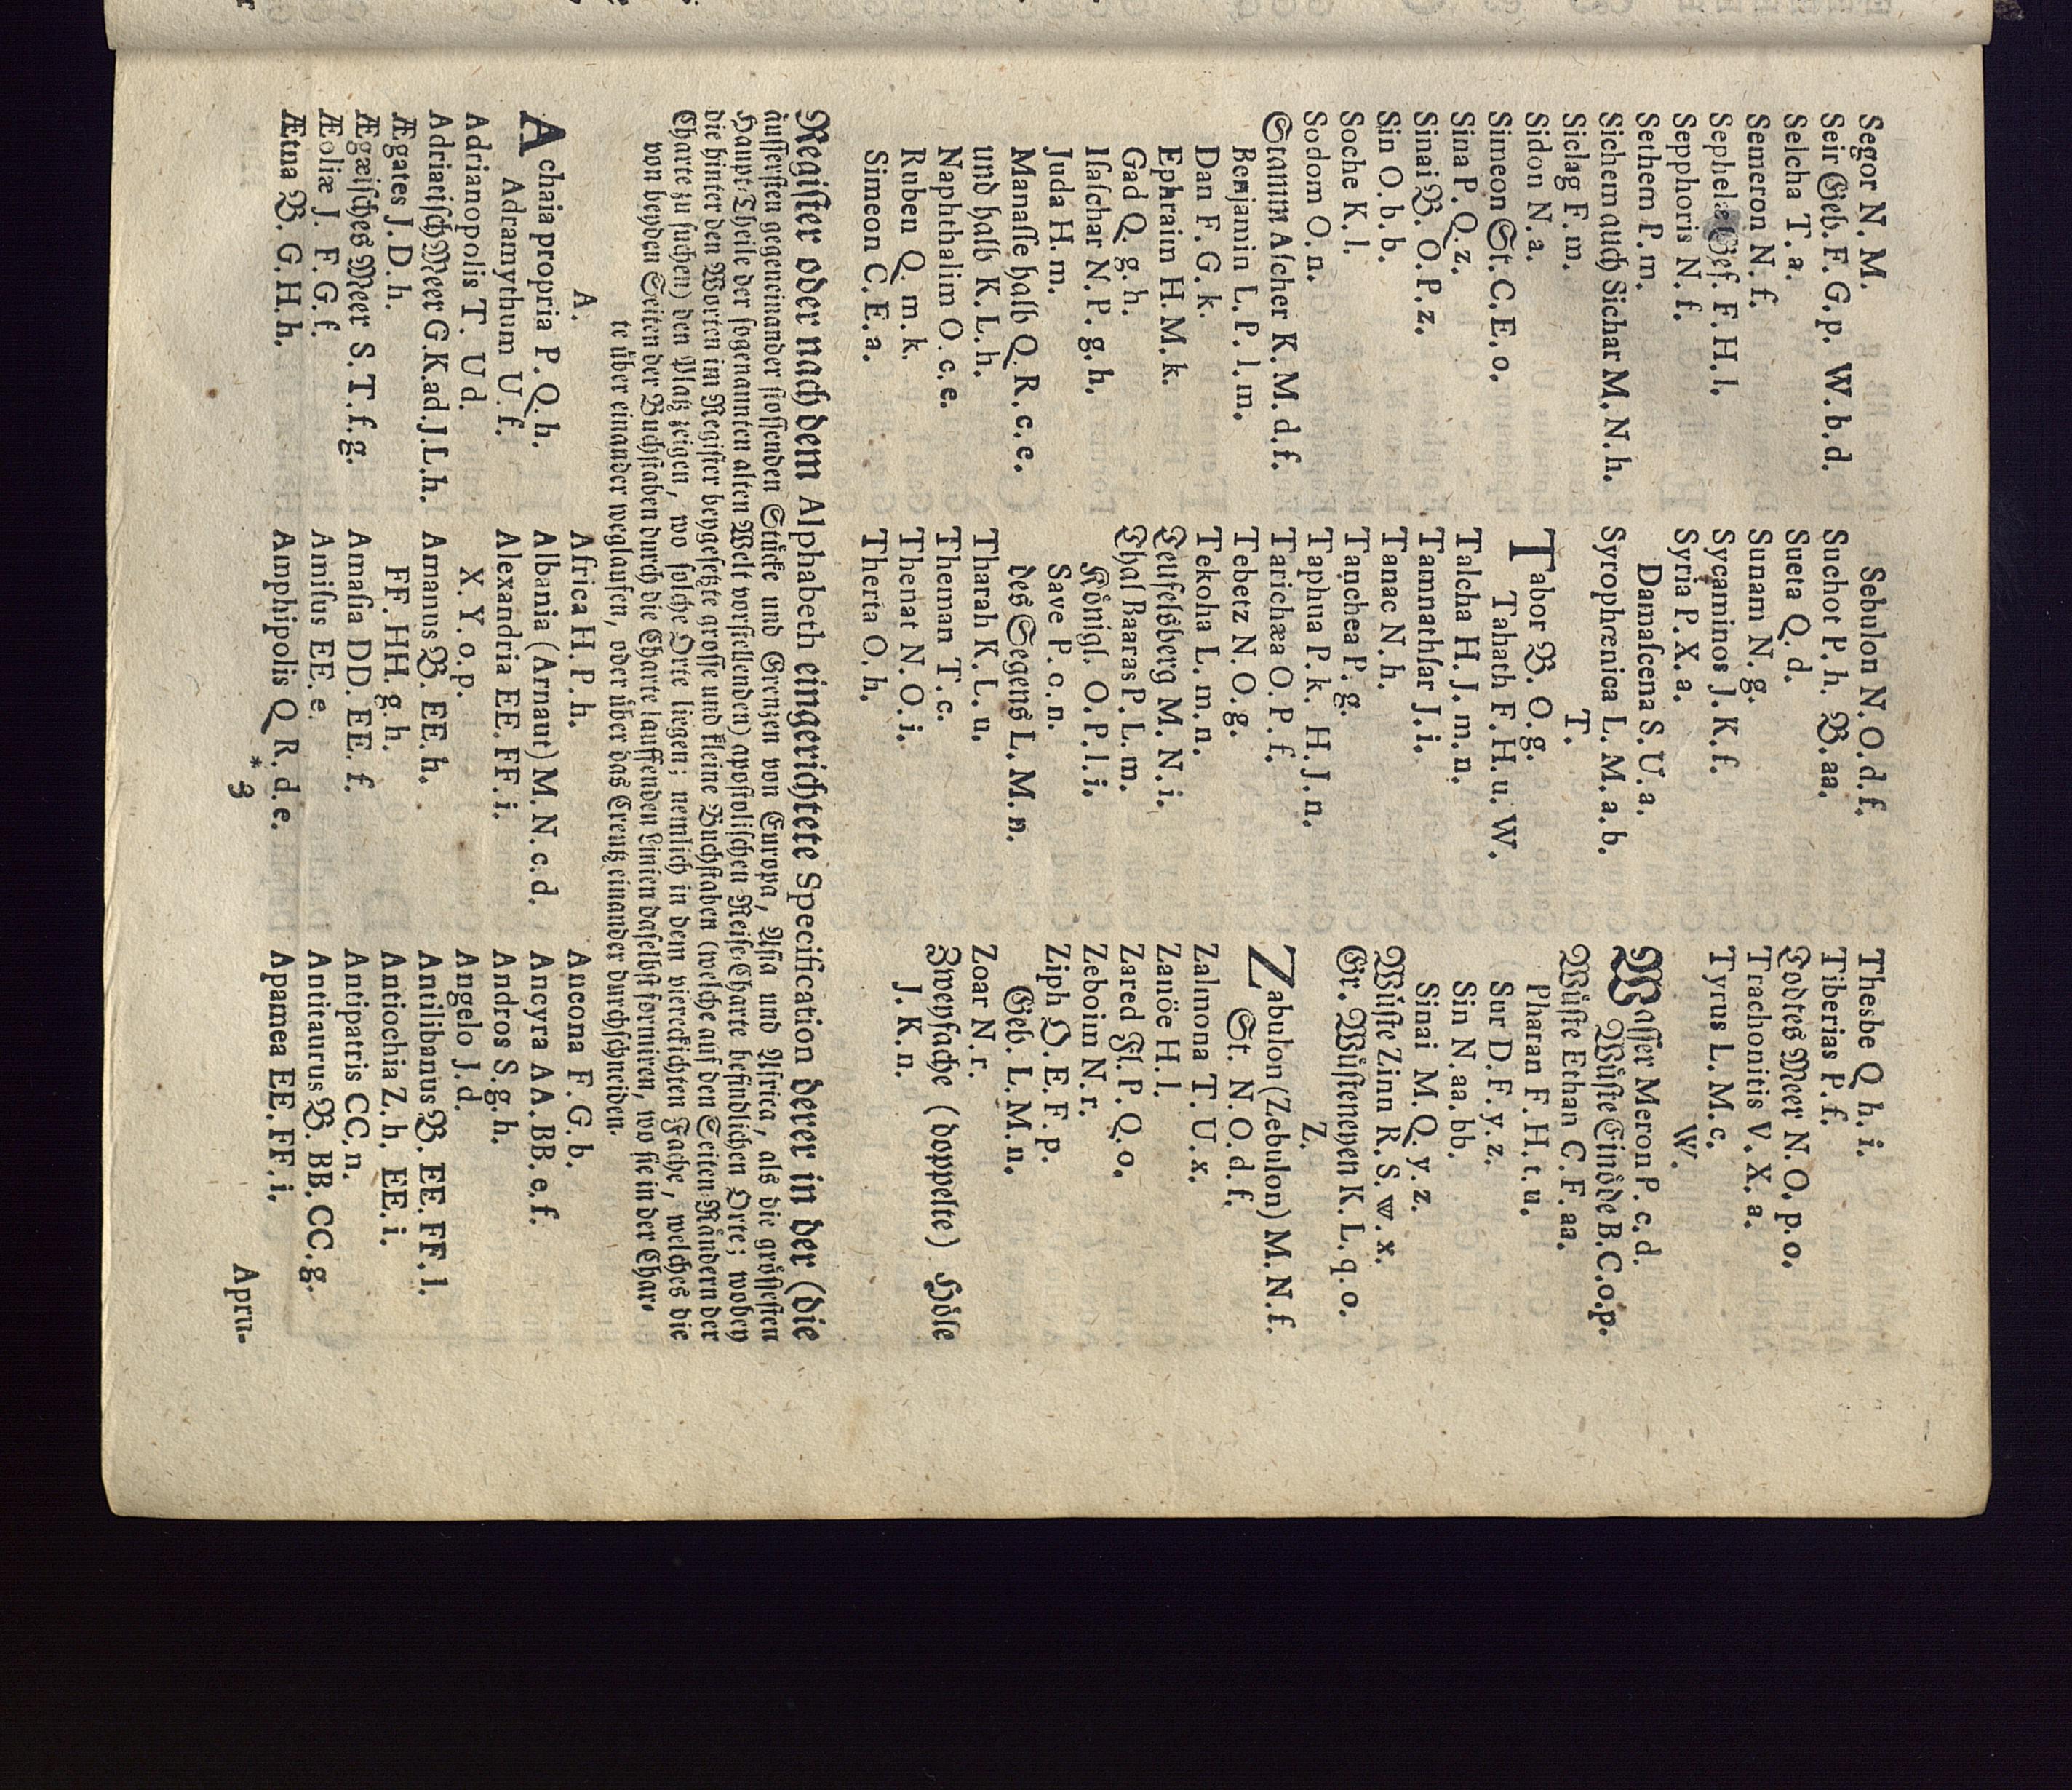 Segor N. M.
Seir Geb. F. G. p. W. b. d.
Selcha T. a.
Semeron N. f.
Sephelæ Gef. F. H. l.
Sepphoris N. f.
Sethem P. m.
Sichem auch Sichar M. N. h.
Siclag F. m.
Sidon N. a.
Simeon St. C. E. o.
Sina P. Q. z.
Sinai B. O. P. z.
Sin O. b. b.
Soche K. l.
Sodom O. n.
Stamm Ascher K. M. d. f.
Benjamin L. P. l. m.
Dan F. G. k.
Ephraim H. M. k.
Gad Q. g. h.
Isaschar N. P. g. h.
Juda H. m.
Manasse halb Q. R. c. e.
und halb K. L. h.
Naphthalim O. c. e.
Ruben Q. m. k.
Simeon C. E. a.
Sebulon N. O. d. f.
Suchot P. h. B. aa.
Sueta Q. d.
Sunam N. g.
Sycaminos J. K. f.
Syria P. X. a.
Damascena S. U. a.
Syrophœnica L. M. a. b.
T.
Tabor B. O. g.
Tahath F. H. u. W.
Talcha H. J. m. n.
Tamnathsar J. i.
Tanac N. h.
Tanchea P. g.
Taphua P. k. H. J. n.
Tarichæa O. P. f.
Tebetz N. O. g.
Tekoha L. m. n.
Teufelsberg M. N. i.
Thal Baaras P. L. m.
Königl. O. P. l. i.
Save P. o. n.
des Segens L. M. n.
Tharah K. L. u.
Theman T. c.
Thenat N. O. i.
Therta O. h.
Thesbe Q h. i.
Tiberias P. f.
Todtes Meer N. O. p. o.
Trachonitis V. X. a.
Tyrus L. M. c.
W.
Wasser Meron P. c. d.
Wüste Einöde B. C. o. p.
Wüste Ethan C. F. aa.
Pharan F. H. t. u.
Sur D. F. y. z.
Sin N. aa. bb.
Sinai M. Q. y. z.
Wüste Zinn R. S. w. x.
Gr. Wüsteneyen K. L. q. o.
Z.
Zabulon (Zebulon) M. N. f.
St. N. O. d. f.
Zalmona T. U. x.
Zanöe H. l.
Zared Fl. P. Q. o.
Zeboim N. r.
Ziph D. E. F. p.
Geb. L. M. n.
Zoar N. r.
Zweyfache (doppelte) Höle
J. K. n.
Register oder nach dem Alphabeth eingerichtete Specification derer in der (die
äussersten gegeneinander stossenden Stücke und Grenzen von Europa, Asia und Africa, als die grössesten
Haupt-Theile der sogenannten alten Welt vorstellenden) apostolischen Reise-Charte befindlichen Orte; wobey
die hinter den Worten im Register beygesetzte grosse und kleine Buchstaben (welche auf den Seiten-Rändern der
Charte zu suchen) den Platz zeigen, wo solche Orte liegen; nemlich in dem viereckichten Fache, welches die
von beyden Seiten der Buchstaben durch die Charte lauffenden Linien daselbst formiren, wo sie in der Char-
te über einander weglaufen, oder über das Creutz einander durchschneiden.
A.
Achaia propria P. Q. h.
Adramythum U. f.
Adrianopolis T. U d.
Adriatisch Meer G. K. ad. J. L. h.
Ægates J. D. h.
Ægæisches Meer S. T. f. g.
Æoliæ J. F. G. f.
Ætna B. G. H. h.
Africa H. P. h.
Albania (Arnaut) M. N. c. d.
Alexandria EE. FF. i.
X. Y. o. p.
Amanus B. EE. h.
FF. HH. g. h.
Amasia DD. EE. f
Amisus EE. e.
Amphipolis Q R. d. e.
Ancona F. G. b.
Ancyra AA. BB. e. f.
Andros S. g. h.
Angelo J. d.
Antilibanus B. EE. FF. l.
Antiochia Z. h. EE. i.
Antipatris CC. n.
Antitaurus B. BB. CC. g.
Apamea EE. FF. i.
* 3
Apru-